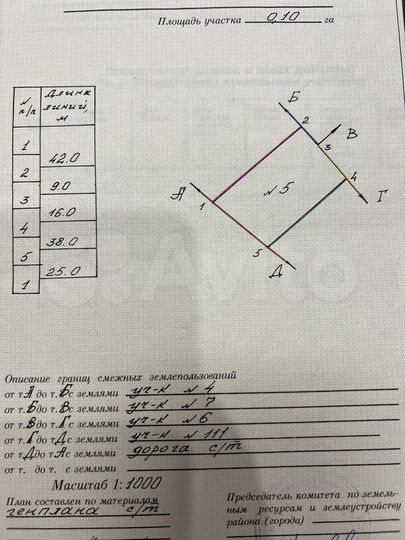 Площадь участка 0,10 га
N п/п Длина линий, м
1
42.0
2
9.0
3
16.0
4
38.0
5
25.0
1
Б
2
В
3
А
N 5
4
1
Г
5
Д
Описание границ смежных землепользований
от т. А до т. Б с землями уч-к N 4
от т. Б до т. В с землями уч-к N 7
от т. В до т. Г с землями уч-к N 6
от т. Г до т. Д с землями уч-к N 111
от т. Д до т. А с землями дорога с/т
от т. до т. с землями
Масштаб 1:1000
План составлен по материалам
генплана с/т
Председатель комитета по земель-
ным ресурсам и землеустройству
района (города)